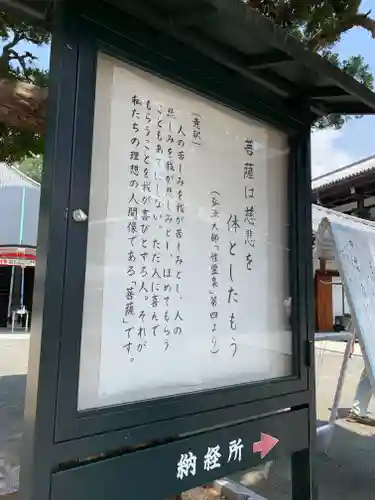 菩薩は慈悲を
体としたもう
(弘法大師「性霊集」第四より)
(意訳)
人の苦しみを我が苦しみとし、人の
悲しみを我が悲しみとし、ほめてもらう
こともあてにしない。ただ人に喜んで
もらうことを我が喜びとする人。それが
私たちの理想の人間像である「菩薩」です。
納経所